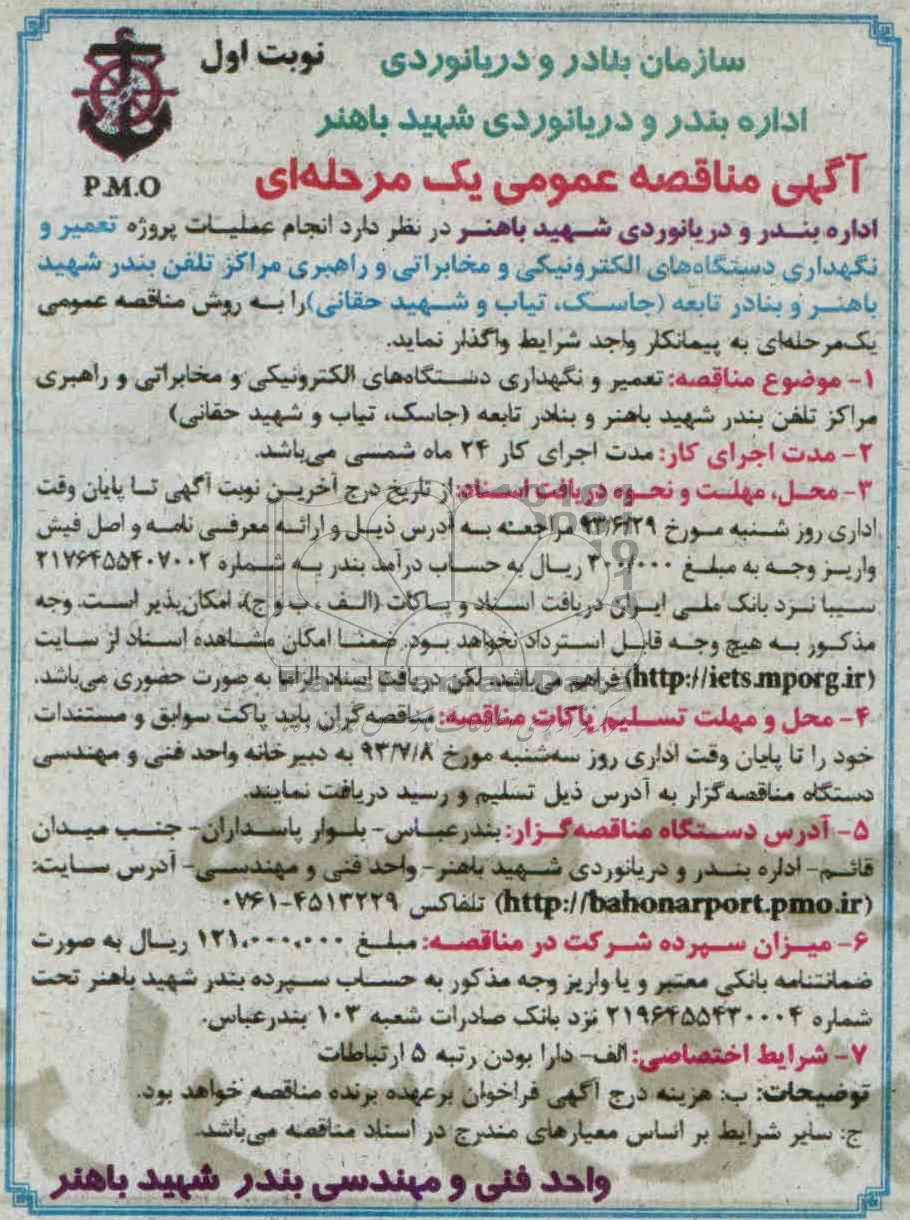 نوبت اول
سازمان بنادر و دریانوردی
اداره بندر و دریانوردی شهید باهنر
P.M.O
آگهی مناقصه عمومی یک مرحله‌ای
اداره بندر و دریانوردی شهید باهنر در نظر دارد انجام عملیات پروژه تعمیر و
نگهداری دستگاه‌های الکترونیکی و مخابراتی و راهبری مراکز تلفن بندر شهید
باهنر و بنادر تابعه (جاسک، تیاب و شهید حقانی) را به روش مناقصه عمومی
یک‌مرحله‌ای به پیمانکار واجد شرایط واگذار نماید.
۱- موضوع مناقصه: تعمیر و نگهداری دستگاه‌های الکترونیکی و مخابراتی و راهبری
مراکز تلفن بندر شهید باهنر و بنادر تابعه (جاسک، تیاب و شهید حقانی)
۲- مدت اجرای کار: مدت اجرای کار ۲۴ ماه شمسی می‌باشد.
۳- محل، مهلت و نحوه دریافت اسناد: از تاریخ درج آخرین نوبت آگهی تا پایان وقت
اداری روز شنبه مورخ ۹۳/۶/۲۹ مراجعه به آدرس ذیل و ارائه معرفی نامه و اصل فیش
واریز وجه به مبلغ ۲۰۰/۰۰۰ ریال به حساب درآمد بندر به شماره ۲۱۷۶۴۵۵۲۰۷۰۰۲
سیبا نزد بانک ملی ایران دریافت اسناد و پاکات (الف ، ب و ج)، امکان‌پذیر است. وجه
مذکور به هیچ وجه قابل استرداد نخواهد بود. ضمنا امکان مشاهده اسناد از سایت
(http://iets.mporg.ir) فراهم می‌باشد، لکن دریافت اسناد الزاما به صورت حضوری می‌باشد.
۴- محل و مهلت تسلیم پاکات مناقصه: مناقصه‌گران باید پاکت سوابق و مستندات
خود را تا پایان وقت اداری روز سه‌شنبه مورخ ۹۳/۷/۸ به دبیرخانه واحد فنی و مهندسی
دستگاه مناقصه‌گزار به آدرس ذیل تسلیم و رسید دریافت نمایند.
۵- آدرس دستگاه مناقصه‌گزار: بندرعباس- بلوار پاسداران- جنب میدان
قائم- اداره بندر و دریانوردی شهید باهنر- واحد فنی و مهندسی- آدرس سایت:
(http://bahonarport.pmo.ir) تلفاکس ۴۵۱۳۲۲۹-۰۷۶۱
۶- میزان سپرده شرکت در مناقصه: مبلغ ۱۲۱،۰۰۰،۰۰۰ ریال به صورت
ضمانتنامه بانکی معتبر و یا واریز وجه مذکور به حساب سپرده بندر شهید باهنر تحت
شماره ۲۱۹۶۴۵۵۴۳۰۰۰۴ نزد بانک صادرات شعبه ۱۰۳ بندرعباس.
۷- شرایط اختصاصی: الف- دارا بودن رتبه ۵ ارتباطات
توضیحات: ب: هزینه درج آگهی فراخوان برعهده برنده مناقصه خواهد بود.
ج: سایر شرایط بر اساس معیارهای مندرج در اسناد مناقصه می‌باشد.
واحد فنی و مهندسی بندر شهید باهنر